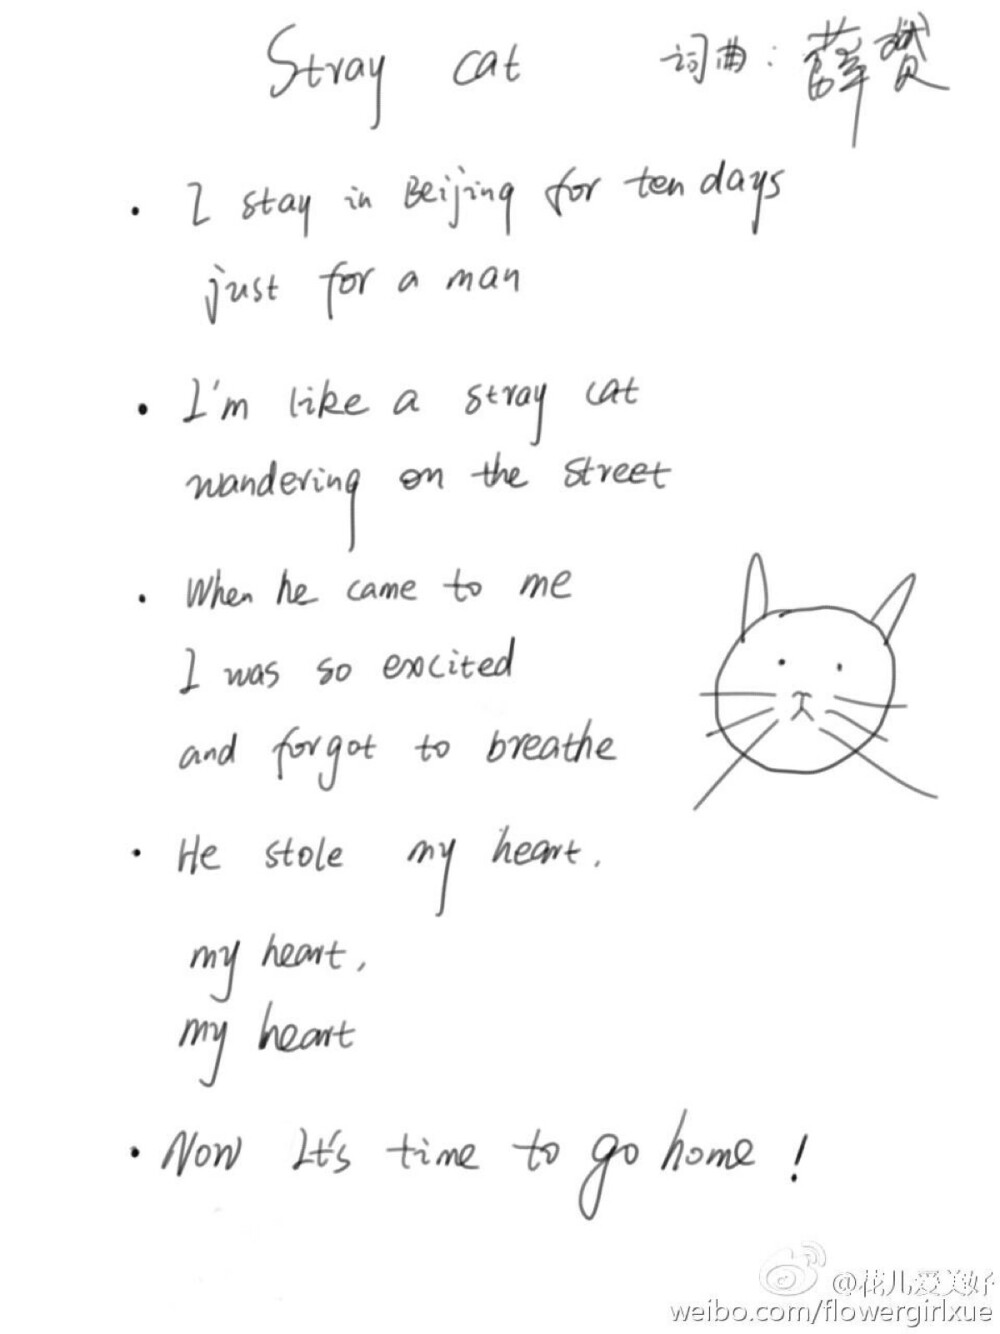 Stray cat 词曲：薛赟
· I stay in Beijing for ten days
just for a man
· I'm like a stray cat
wandering on the street
· When he came to me
I was so excited
and forgot to breathe
· He stole my heart.
my heart,
my heart
· Now It's time to go home!
@花儿爱美好
weibo.com/flowergirlxue